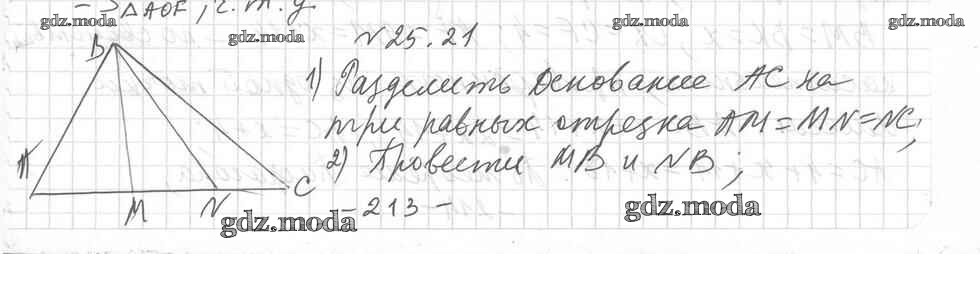 - S△AOF, ч.т.д.
gdz.moda
gdz.moda
gdz.moda
gdz.moda
N 25.21
B
1) Разделить основание AC на
три равных отрезка AM = MN = NC;
2) Провести MB и NB;
A
M
N
C
gdz.moda
gdz.moda
- 213 -